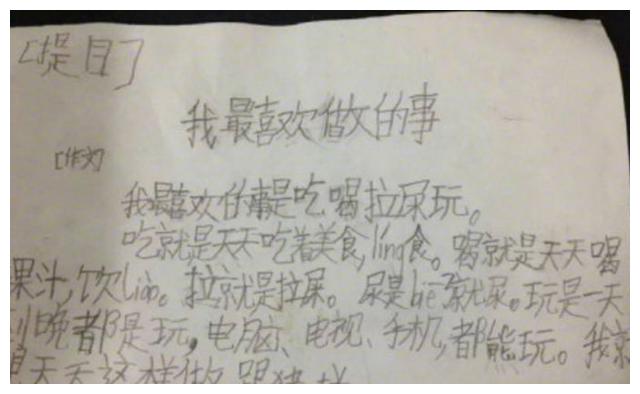 [提目]
我最喜欢做的事
[作文]
我最喜欢的事是吃喝拉尿玩。
吃就是天天吃着美食,ling食。喝就是天天喝
果汁,饮liào。拉就是拉屎。尿是biē了就尿。玩是一天
到晚都是玩,电脑、电视、手机,都能玩。我就
天天这样做跟猪